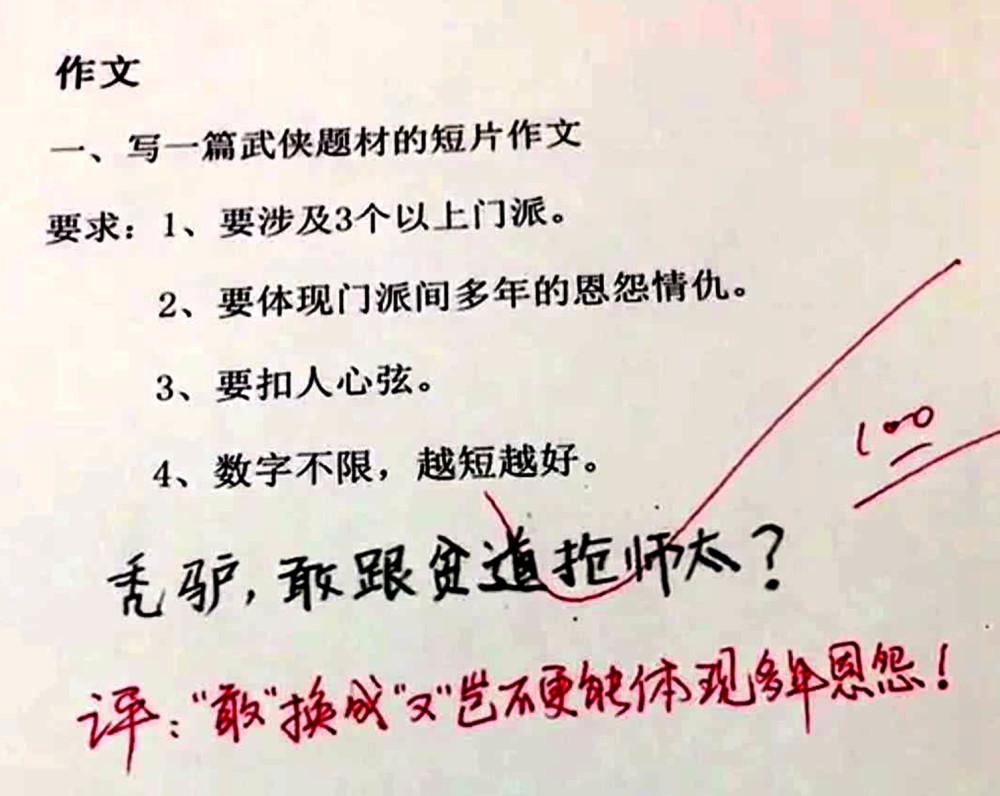 作文
一、写一篇武侠题材的短片作文
要求：1、要涉及3个以上门派。
2、要体现门派间多年的恩怨情仇。
3、要扣人心弦。
4、数字不限，越短越好。
100
秃驴，敢跟贫道抢师太？
评："敢"换成"又"岂不更能体现多年恩怨！